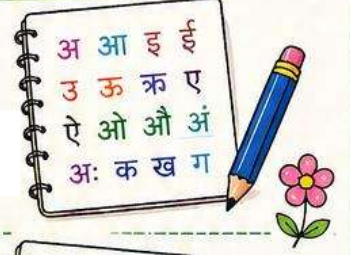 अ आ इ ई
उ ऊ क्र ए
ऐ ओ औ अं
अः क ख ग